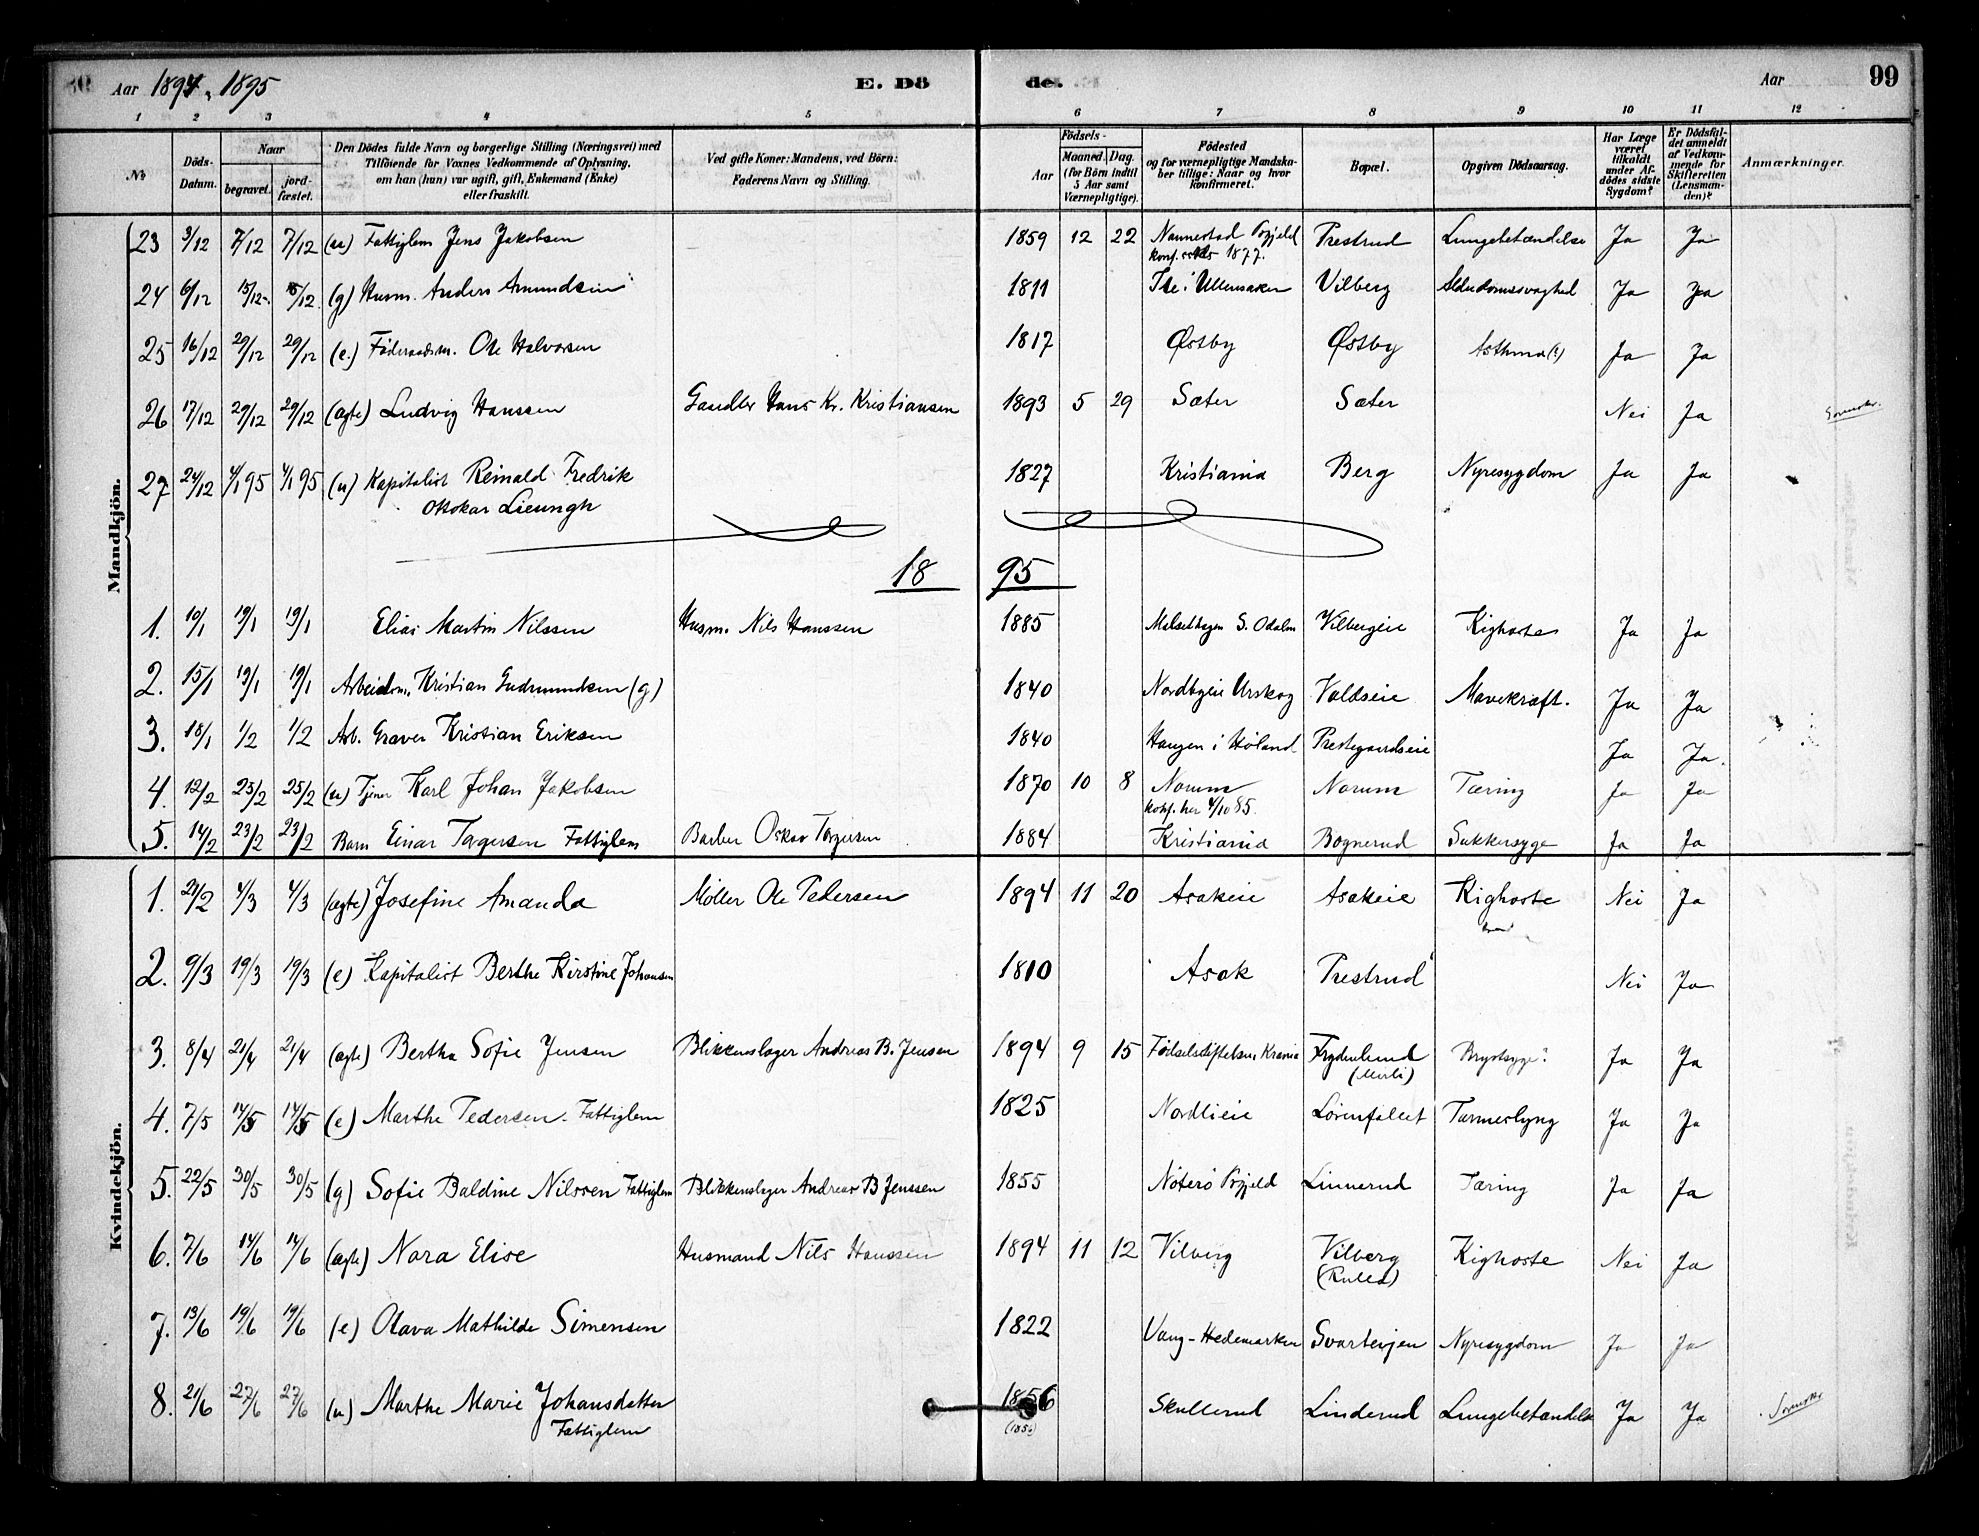 Aar 1894, 1895 E. Dö de. Aar 99
1 2 3 4 5 6 7 8 9 10 11 12
№ Döds-Datum. Naar begravet. jord-fæstet. Den Dödes fulde Navn og borgerlige Stilling (Næringsvei) med Tilföiende for Voxnes Vedkommende af Oplysning, om han (hun) var ugift, gift, Enkemand (Enke) eller fraskilt. Ved gifte Koner: Mandens, ved Börn: Faderens Navn og Stilling. Födsels- Aar Maaned. Dag. (for Börn indtil 5 Aar samt Værnepligtige). Födested og for værnepligtige Mandskaber tillige: Naar og hvor konfirmeret. Bopæl. Opgiven Dödsaarsag. Har Læge været tilkaldt under Afdödes sidste Sygdom? Er Dödsfaldet anmeldt af Vedkommende for Skifteretten (Lensmanden)? Anmærkninger.
Mandkjön.
23 3/12 7/12 7/12 (u) Fattiglem Jens Jakobsen 1859 12 22 Nannestad Prgjeld Prestrud Lungebetændelse Ja Ja
konf. 1877.
24 6/12 15/12 15/12 (g) Husm. Anders Amundsen 1811 i Ullensaker Vilberg Alderdomssvaghed Ja Ja
25 16/12 29/12 29/12 (e.) Föderaadsm. Ole Halvorsen 1817 Østby Østby Asthma (?) Ja Ja
26 17/12 29/12 29/12 (ægte) Ludvig Hanssen Hans Kr. Kristiansen 1893 5 29 Sæter Sæter Nei Ja
27 24/12 4/1 95 4/1 95 (u) Kapitalist Reinald Fredrik 1827 Kristiania Berg Nyresygdom Ja Ja
Ottokar Lieungh
18 95
1. 10/1 19/1 19/1 Elias Martin Nilssen Husm. Nils Hanssen 1885 S. Odalen Vilbergeie Kighoste Ja Ja
2. 15/1 19/1 19/1 Arbeidsm. Kristian Gudmundsen (g) 1840 Nordbyeie Urskog Valdseie Mavekræft. Ja Ja
3. 18/1 1/2 1/2 Arb. Graver Kristian Eriksen 1840 Haugen i Høland Prestegaardseie Ja Ja.
4. 12/2 25/2 25/2 (u) Tjener Karl Johan Jakobsen 1870 10 8 Norum Norum Tæring Ja Ja
konf. her 4/10 85.
5. 14/2 23/2 23/2 Barn Einar Torgersen Fattiglem Barber Oskar Torgersen 1884 Kristiania Bognerud Sukkersyge Ja Ja
Kvindekjön.
1. 21/2 4/3 4/3 (ægte) Josefine Amanda Møller Ole Pedersen 1894 11 20 Asakeie Asakeie Kighoste Nei Ja
2. 9/3 19/3 19/3 (e) Kapitalist Berthe Kirstine Johansen 1810 Asak Prestrud Nei Ja
3. 8/4 21/4 21/4 (ægte) Bertha Sofie Jensen Blikkenslager Andreas B. Jensen 1894 9 15 Fødselsstiftelsen, Krania Frydenlund Brystsyge? Ja Ja
4. 7/5 14/5 14/5 (e) Marthe Pedersen. Fattiglem 1825 Nordlieie Lørenfallet Tarmeslyng Ja Ja
5. 22/5 30/5 30/5 (g) Sofie Baldine Nilssen Fattiglem Blikkenslager Andreas B Jenssen 1855 Nøterø Prgjeld Linnerud Tæring Ja Ja
6. 7/6 14/6 14/6 (ægte) Nora Elise Husmand Nils Hanssen 1894 11 12 Vilberg Vilberg Kighoste Nei Ja
7. 13/6 19/6 19/6 (e) Olava Mathilde Simensen 1822 Vang-Hedemarken Svarteigen Nyresygdom Ja Ja
8. 21/6 27/6 27/6 (u) Marthe Marie Johansdatter 1856 Skullerud Linderud Lungebetændelse Ja Ja
Fattiglem (1856)